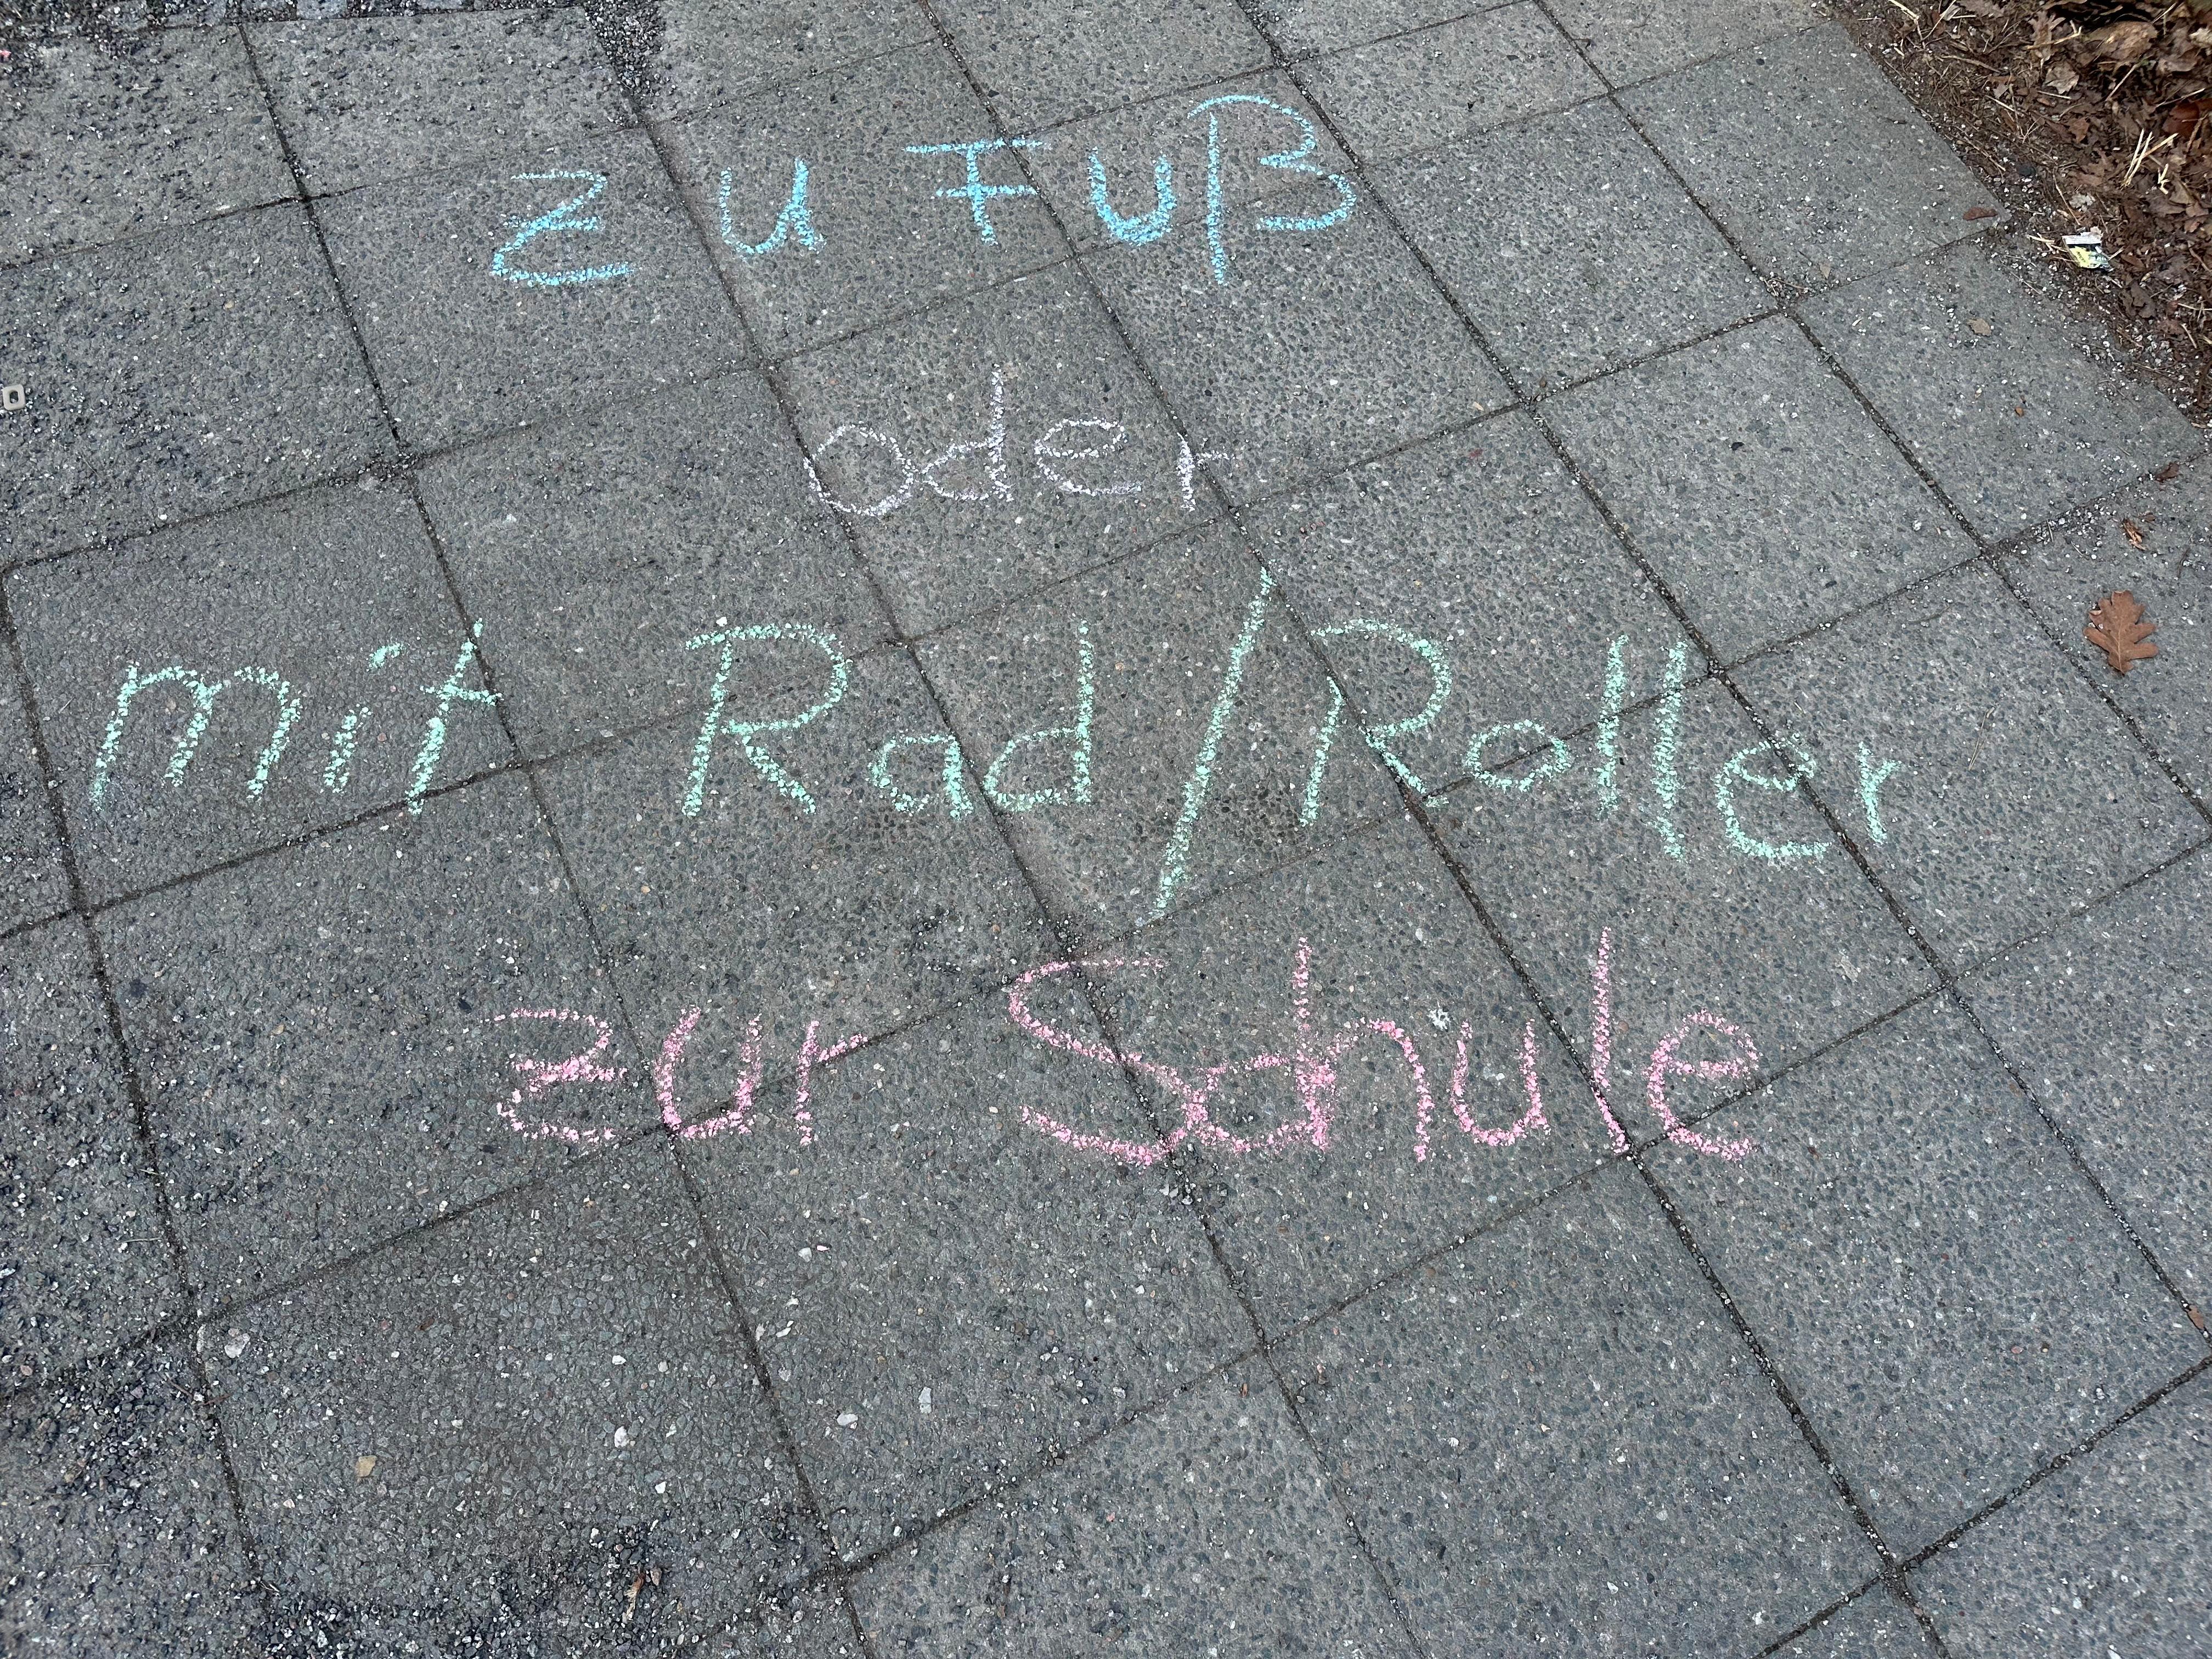 zu Fuß
oder
mit Rad/Roller
zur Schule